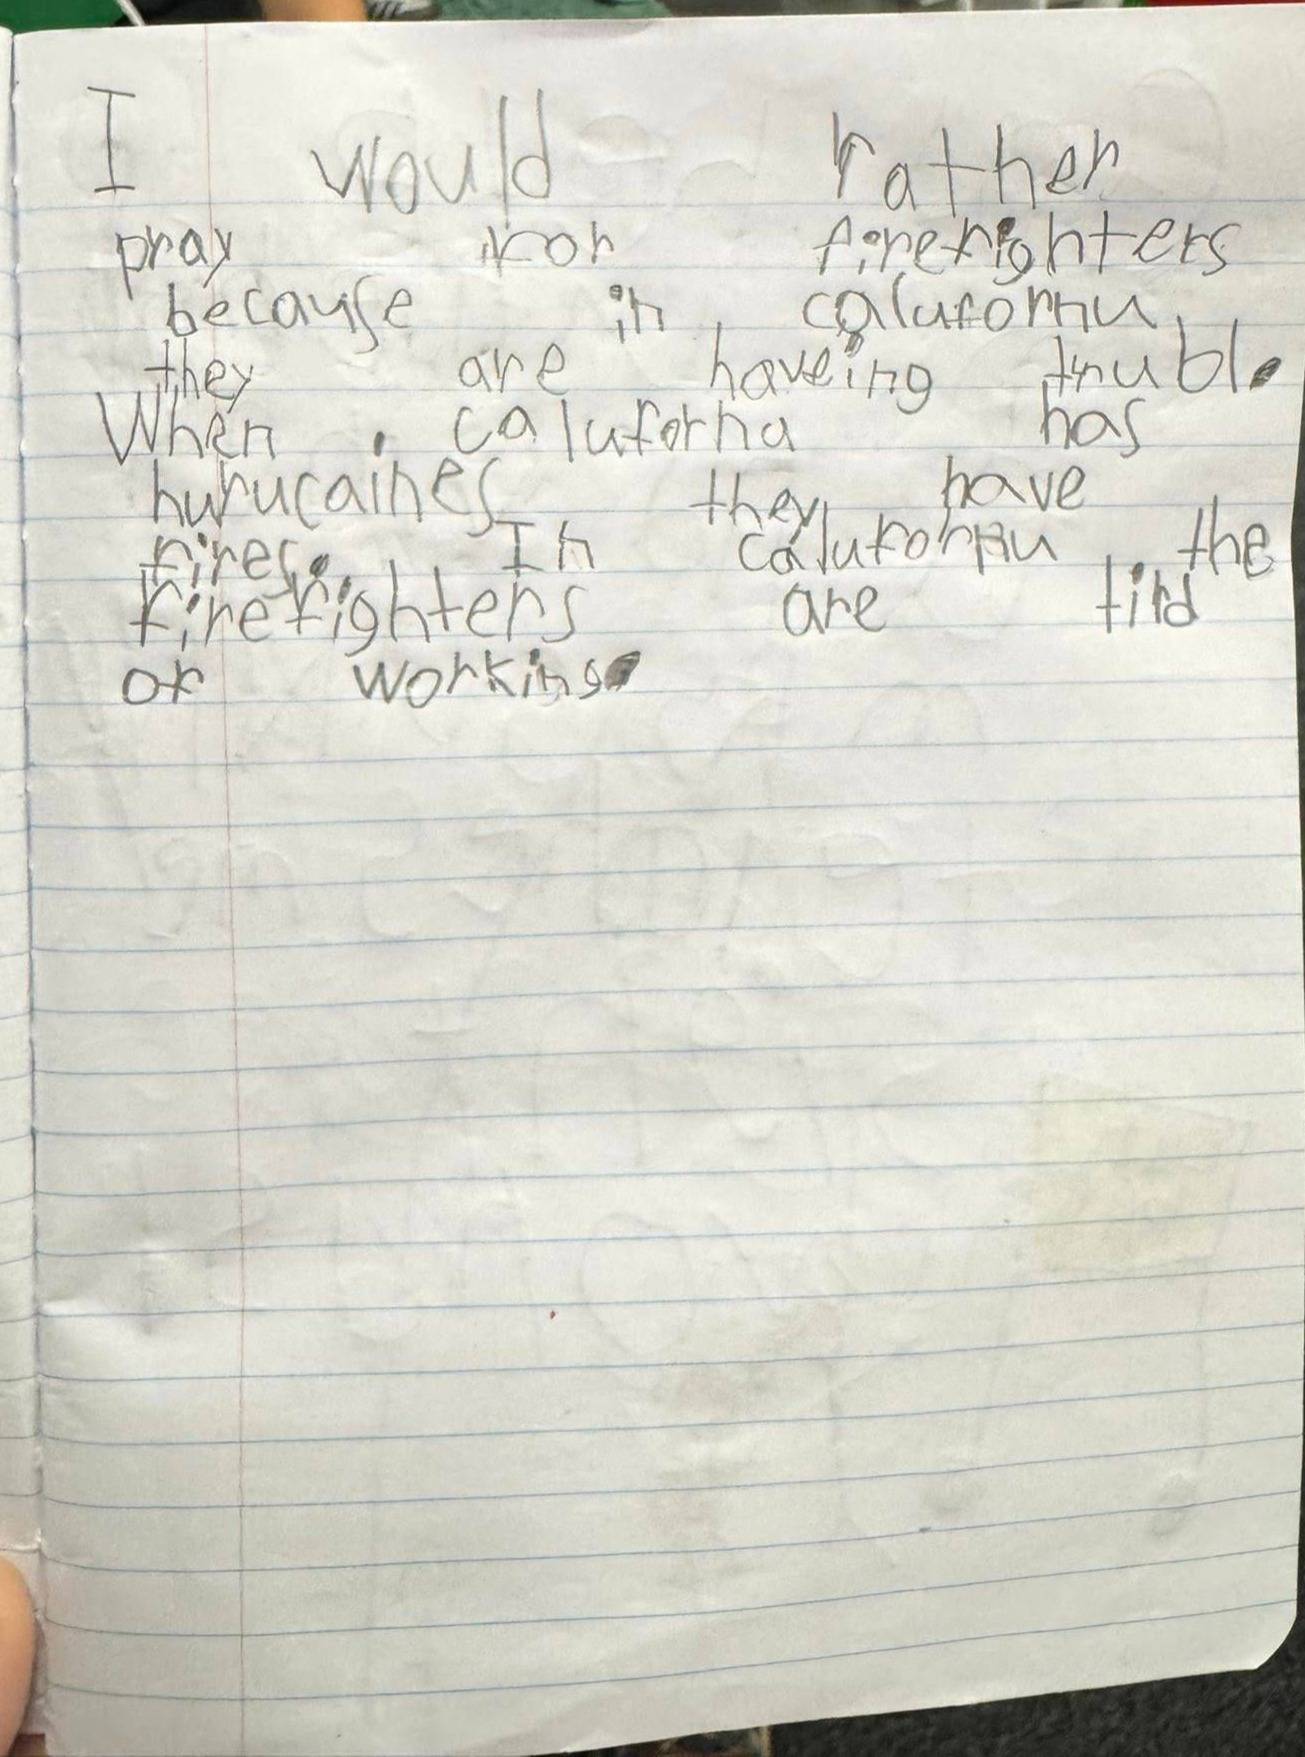 I would rather
pray for firefighters
because in calufornu
they are haveing trubl.
When caluforna has
hurucaines they have
fires. In calufornu the
firefighters are tird
of working.